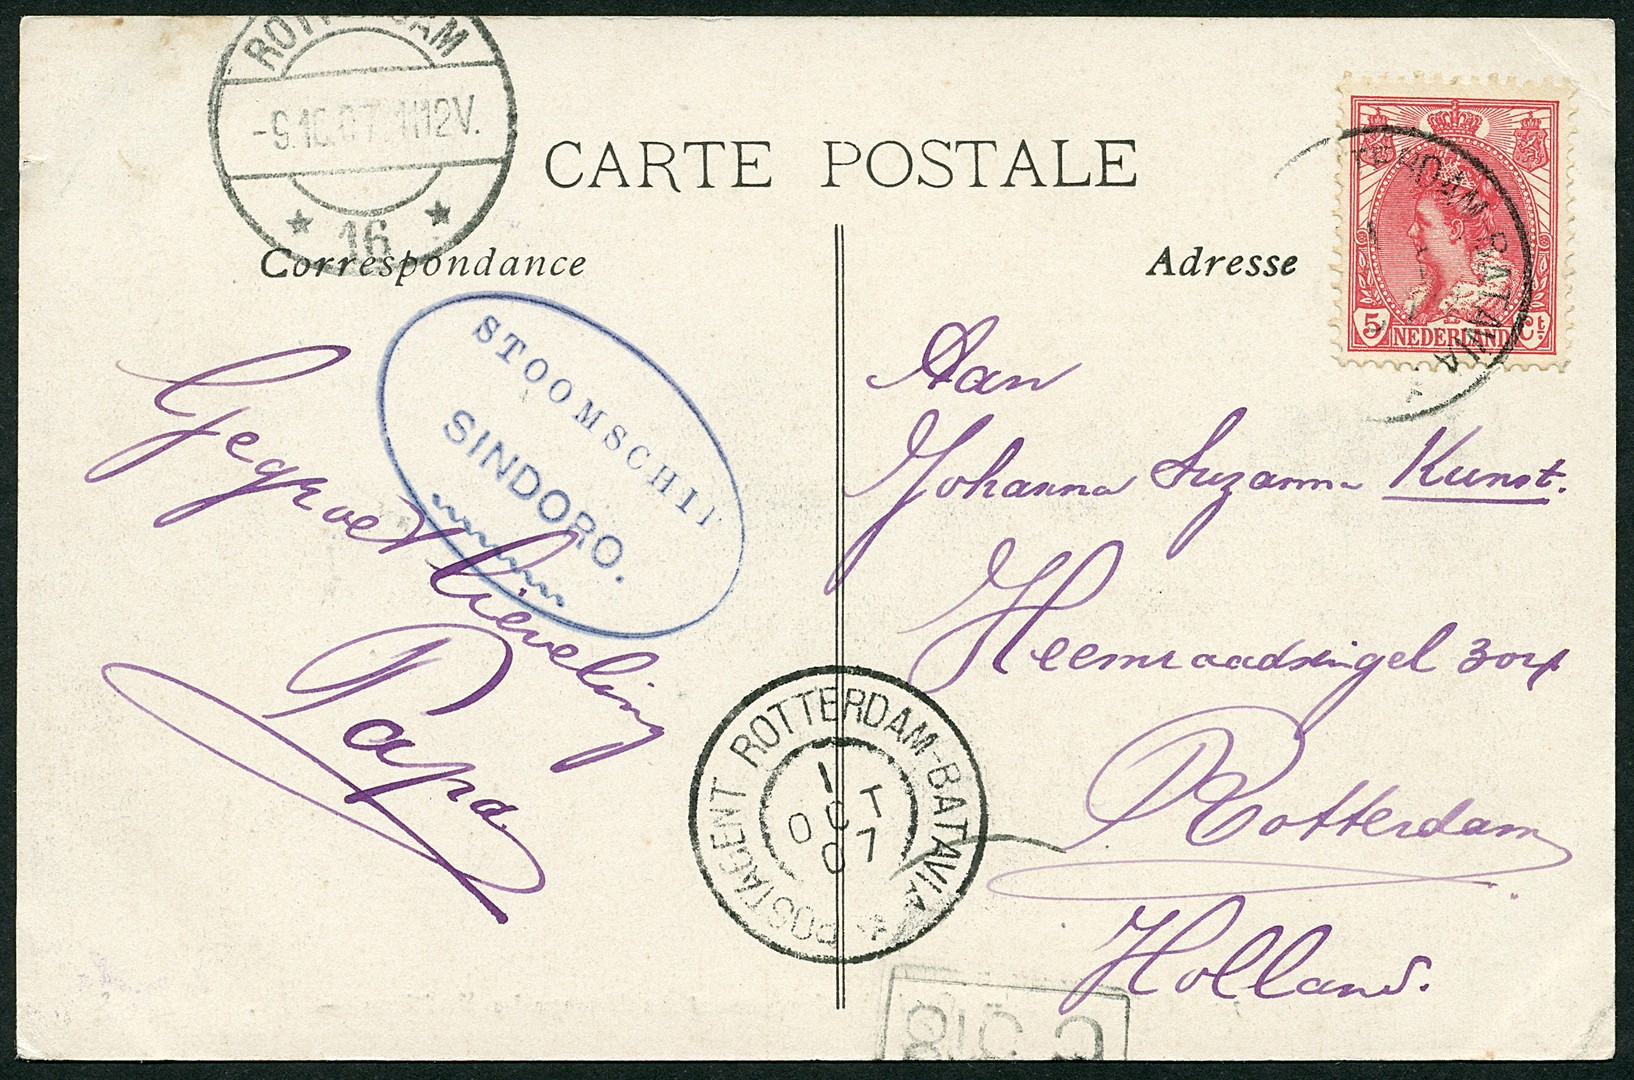 ROTTERDAM
-9.10.07 11-12V.
16
CARTE POSTALE
Correspondance
Adresse
5 NEDERLAND Ct
ROTTERDAM BATAVIA
STOOMSCHIP
SINDORO.
Gegroet lieveling
Papa
Aan
Johanna Suzanna Kunst.
Heemraadsingel
Rotterdam
Holland.
POSTAGENT ROTTERDAM-BATAVIA
1 OCT 07